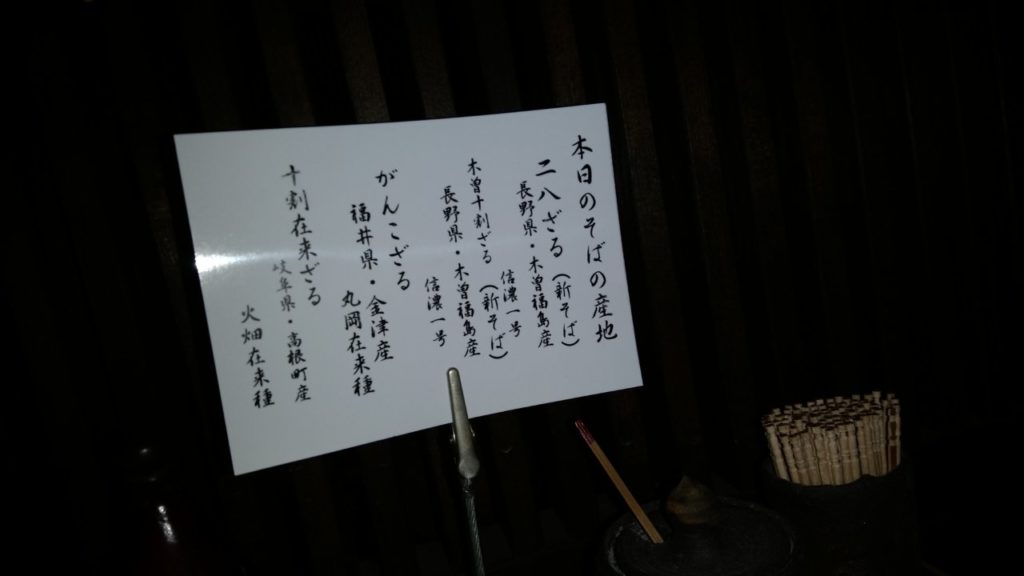 本日のそばの産地
二八ざる（新そば）
長野県・木曽福島産
信濃一号
木曽十割ざる（新そば）
長野県・木曽福島産
信濃一号
がんこざる
福井県・金津産
丸岡在来種
十割在来ざる
岐阜県・高根町産
火畑在来種